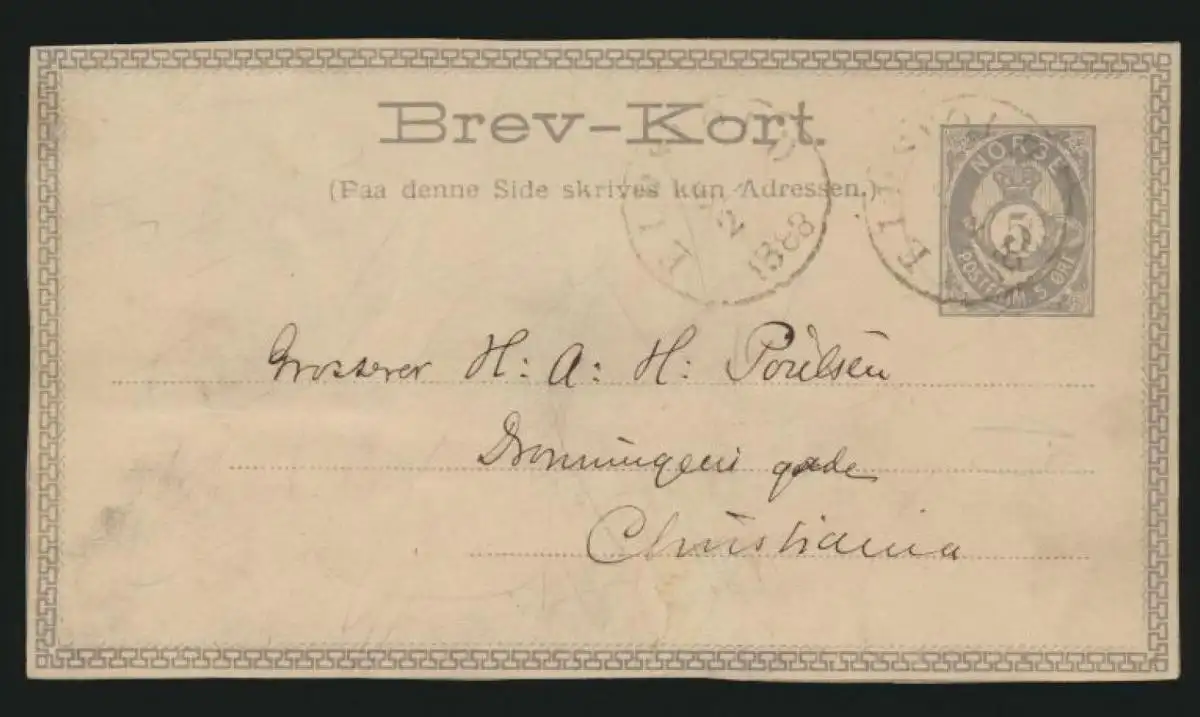 Brev-Kort.
(Paa denne Side skrives kun Adressen.)
2
1888
NORGE
5
POSTFRIM. 5 ØRE
Grosserer H: A: H: Poulsen
Dronningens gade
Christiania